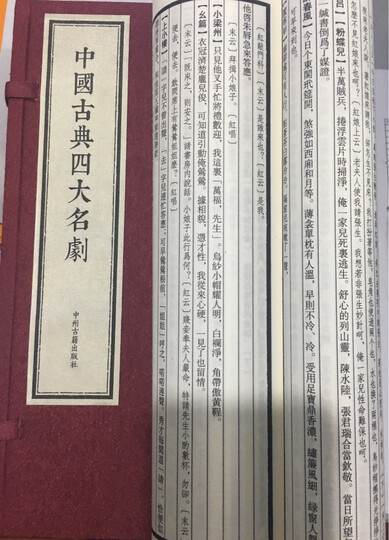 娘上云〕老夫人使我請張生。我想若非張生妙計呵,俺一家兒性命難保也呵。
呂】【粉蝶兒】半萬賊兵,捲浮雲片時掃淨,俺一家兒死裏逃生。舒心的列山靈,陳水陸,張君瑞合當欽敬。當日所望
緘書倒爲了媒證。
春風】今日个東閣玳筵開,煞強如西廂和月等。薄衾單枕有人溫,早則不冷、冷。受用足寶鼎香濃,繡簾風細,綠窗人
可早來到也。
他啓朱唇急來答應。
〔紅敲門科〕〔末云〕是誰來也?〔紅云〕是我。
〔末云〕拜揖小娘子。〔紅唱〕
【小梁州】只見他叉手忙將禮數迎,我這裏「萬福,先生」。烏紗小帽耀人明,白襴淨,角帶傲黃鞓。
【幺篇】衣冠濟楚龐兒俊,可知道引動俺鶯鶯。據相貌,憑才性,我從來心硬,一見了也留情。
〔末云〕「既來之,則安之。」請書房內說話。小娘子此行爲何?〔紅云〕賤妾奉夫人嚴命,特請先生小酌數杯,勿却。〔末云〕
便去,便去。敢問席上有鶯鶯姐姐麽?〔紅唱〕
【上小樓】「請」字兒不曾出聲,「去」字兒連忙答應;可早鶯鶯根前,「姐姐」呼之,喏喏連聲。秀才每聞道「請」,恰便似
中國古典四大名劇
中州古籍出版社